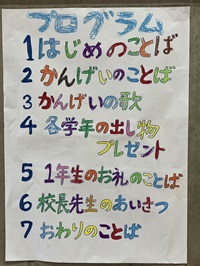 プログラム
1 はじめのことば
2 かんげいのことば
3 かんげいの歌
4 各学年の出し物
プレゼント
5 1年生のお礼のことば
6 校長先生のあいさつ
7 おわりのことば